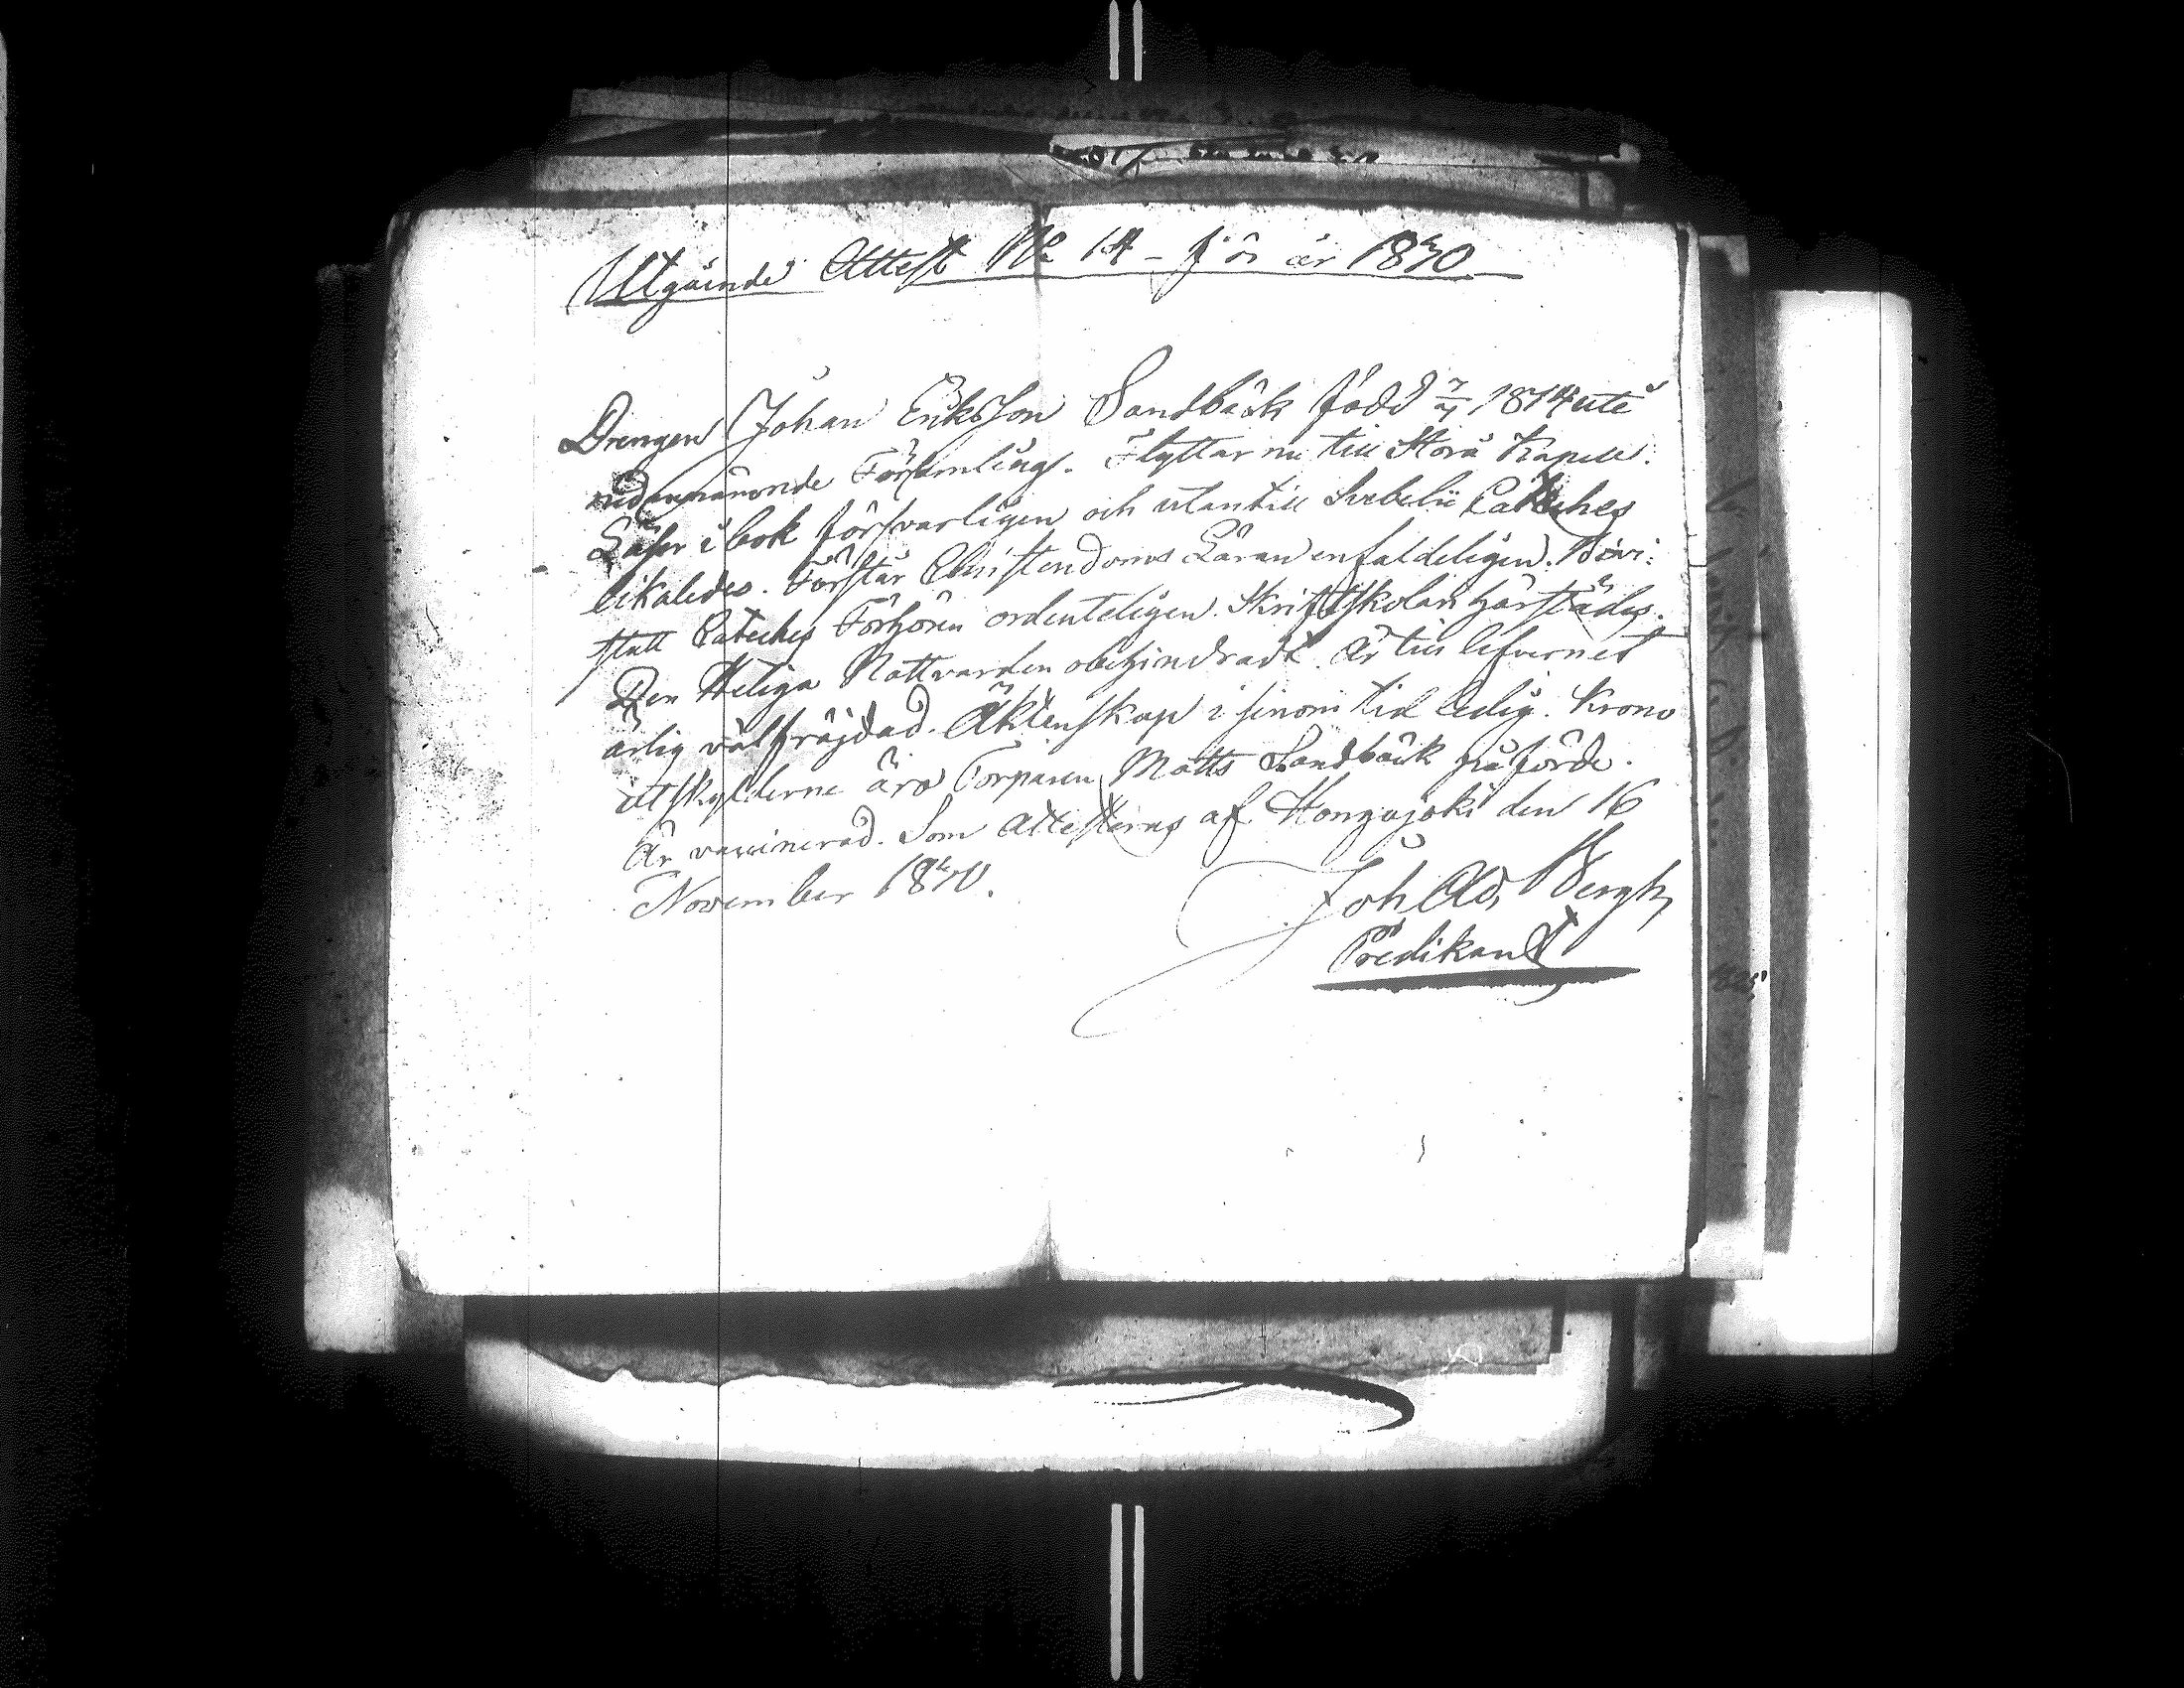 Utgående Attest No 14 - för år 1840
Drengen Johan Eriksson Sandbäck född 1814 uti
nedannämnde Församling. Flyttar nu till Storå Kapell.
Läser i bok försvarligen och utantill Svebelii Cateches
likaledes. Förstår Christendoms Läran enfaldeligen. Bevi-
stat Cateches Förhören ordenteligen. Skriftskolan härstädes.
Den Heliga Nattvarden obehindradt. Är till lefvernet
ärlig välfräjdad. Äktenskap i sinom tid ledig. Krono
utskylderne äro Torparen Matts Sandbäck påförde.
Är vaccinerad. Som attesteras af Hongojoki den 16
November 1840.
Joh Ad. Bergh
Predikant